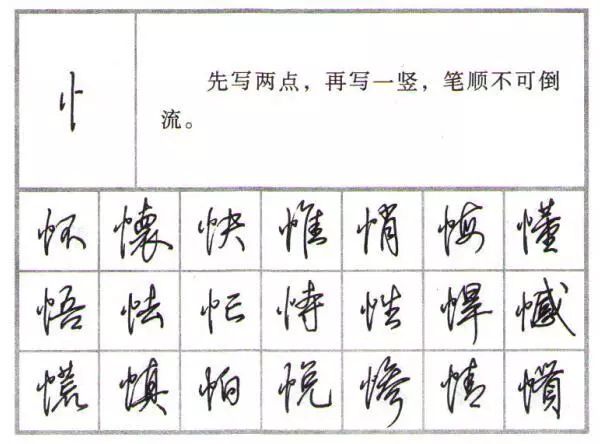 忄
先写两点，再写一竖，笔顺不可倒
流。
怀 懷 快 惟 悄 悔 懂
悟 怯 忙 恃 性 悍 憾
慌 慎 怕 悦 惨 情 憤